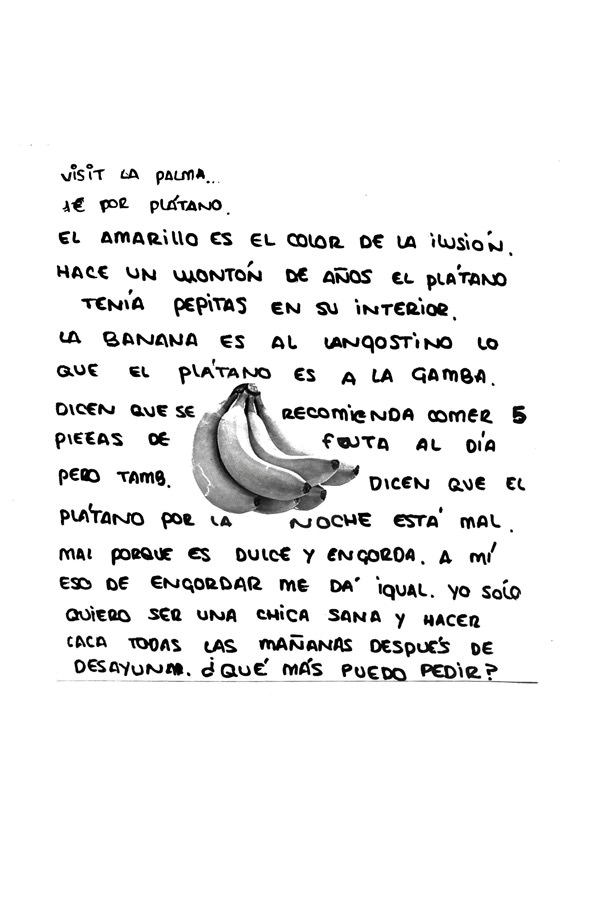 VISIT LA PALMA...
1€ POR PLÁTANO.
EL AMARILLO ES EL COLOR DE LA ILUSIÓN.
HACE UN MONTÓN DE AÑOS EL PLÁTANO
TENÍA PEPITAS EN SU INTERIOR.
LA BANANA ES AL LANGOSTINO LO
QUE EL PLÁTANO ES A LA GAMBA.
DICEN QUE SE RECOMIENDA COMER 5
PIEZAS DE FRUTA AL DÍA
PERO TAMB. DICEN QUE EL
PLÁTANO POR LA NOCHE ESTÁ MAL.
MAL PORQUE ES DULCE Y ENGORDA. A MÍ
ESO DE ENGORDAR ME DA´ IGUAL. YO SOLO
QUIERO SER UNA CHICA SANA Y HACER
CACA TODAS LAS MAÑANAS DESPUÉS DE
DESAYUNAR. ¿QUÉ MÁS PUEDO PEDIR?